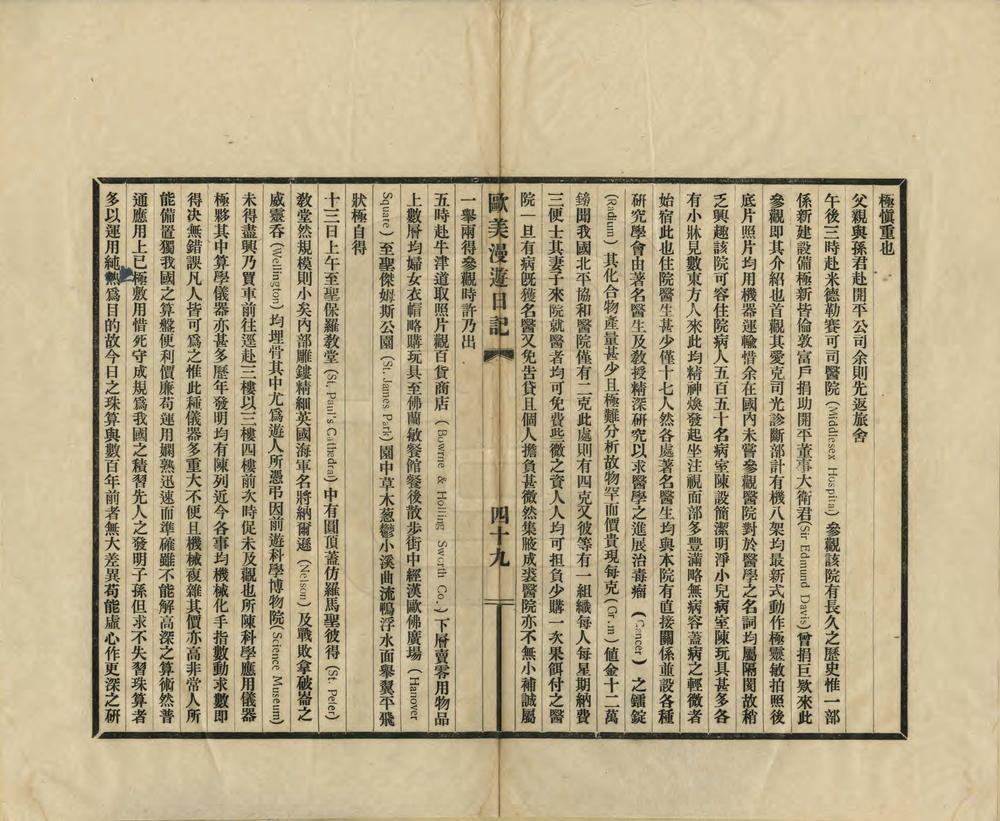 極愼重也
父親與孫君赴開平公司余則先返旅舍
午後三時赴米德勒賽可司醫院 (Middlesex Hospital) 參觀該院有長久之歷史惟一部
係新建設備極新皆倫敦富戶捐助開平董事大衛君(Sir Edmund Davis)曾捐巨欵來此
參觀即其介紹也首觀其愛克司光診斷部計有機八架均最新式動作極靈敏拍照後
底片照片均用機器運輸惜余在國內未嘗參觀醫院對於醫學之名詞均屬隔閡故稍
乏興趣該院可容住院病人五百五十名病室陳設簡潔明淨小兒病室陳玩具甚多各
有小牀見數東方人來此均精神煥發起坐注視面部多豐滿略無病容蓋病之輕微者
始宿此也住院醫生甚少僅十七人然各處著名醫生均與本院有直接關係並設各種
研究學會由著名醫生及教授精深研究以求醫學之進展治毒瘤 (Cancer) 之鐳錠
(Radium) 其化合物產量甚少且極難分析故物罕而價貴現每克 (Gram) 値金十二萬
鎊聞我國北平協和醫院僅有二克此處則有四克又彼等有一組織每人每星期納費
三便士其妻子來院就醫者均可免費些微之資人人均可担負少購一次果餌付之醫
院一旦有病既獲名醫又免告貸且個人擔負甚微然集腋成裘醫院亦不無小補誠屬
歐美漫遊日記 四十九
一舉兩得參觀時許乃出
五時赴牛津道取照片觀百貨商店 (Bowrne & Holling Sworth Co.,) 下層賣零用物品
上數層均婦女衣帽略購玩具至佛蘭敏餐館餐後散步街中經漢歐佛廣場 (Hanover
Square) 至聖傑姆斯公園 (St. James Park) 園中草木葱鬱小溪曲流鴨浮水面舉翼平飛
狀極自得
十三日上午至聖保羅敎堂 (St. Paul's Cathedral) 中有圓頂蓋仿羅馬聖彼得 (St. Peter)
敎堂然規模則小矣內部雕鏤精細英國海軍名將納爾遜 (Nelson) 及戰敗拿破崙之
威靈吞 (Wellington) 均埋骨其中尤爲遊人所憑弔因前遊科學博物院(Science Museum)
未得盡興乃買車前往逕赴三樓以三樓四樓前次時促未及觀也所陳科學應用儀器
極夥其中算學儀器亦甚多歷年發明均有陳列近今各事均機械化手指數動求數即
得决無錯誤凡人皆可爲之惟此種儀器多重大不便且機械複雜其價亦高非常人所
能備置獨我國之算盤便利價廉苟運用嫻熟迅速而準確雖不能解高深之算術然普
通應用上已極敷用惜死守成規爲我國之積習先人之發明子孫但求不失習珠算者
多以運用純熟爲目的故今日之珠算與數百年前者無大差異苟能虛心作更深之研